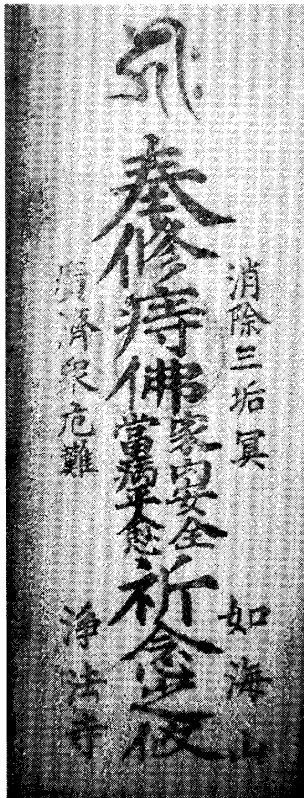 消除三垢冥
如海山
奉修痔佛
家内安全
當病平愈
祈念之攸
廣濟衆危難
浄法寺